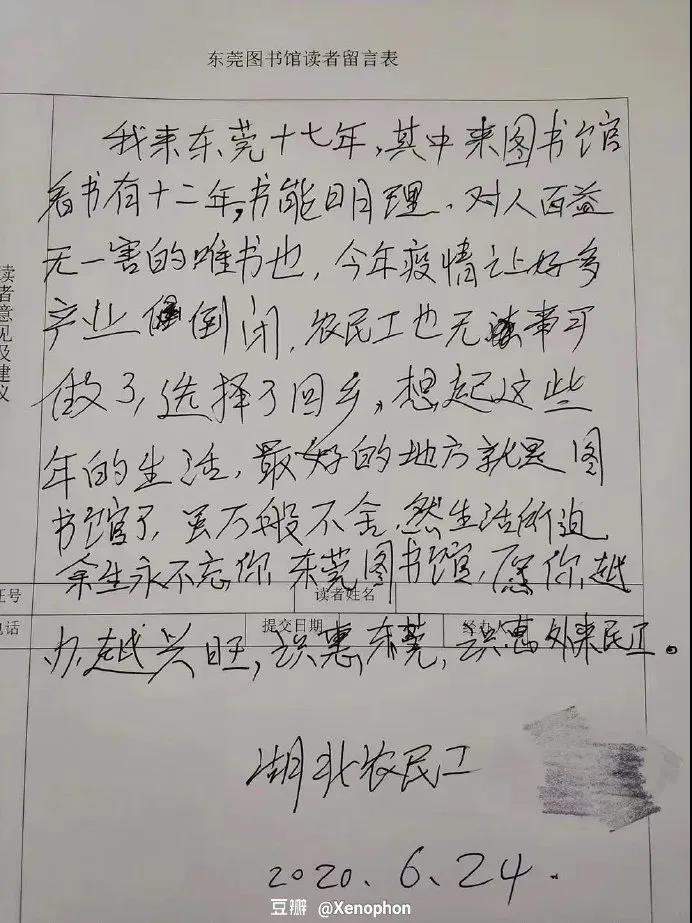 东莞图书馆读者留言表
我来东莞十七年,其中来图书馆
看书有十二年,书能明理,对人百益
无一害的唯书也,今年疫情让好多
产业倒闭,农民工也无事可
做了,选择了回乡,想起这些
年的生活,最好的地方就是图
书馆了,虽万般不舍,然生活所迫,
余生永不忘你,东莞图书馆,愿你越
办越兴旺,识惠东莞,识惠外来民工。
读者意见及建议
证号
读者姓名
电话
提交日期
经办人
湖北农民工
2020.6.24.
豆瓣 @Xenophon